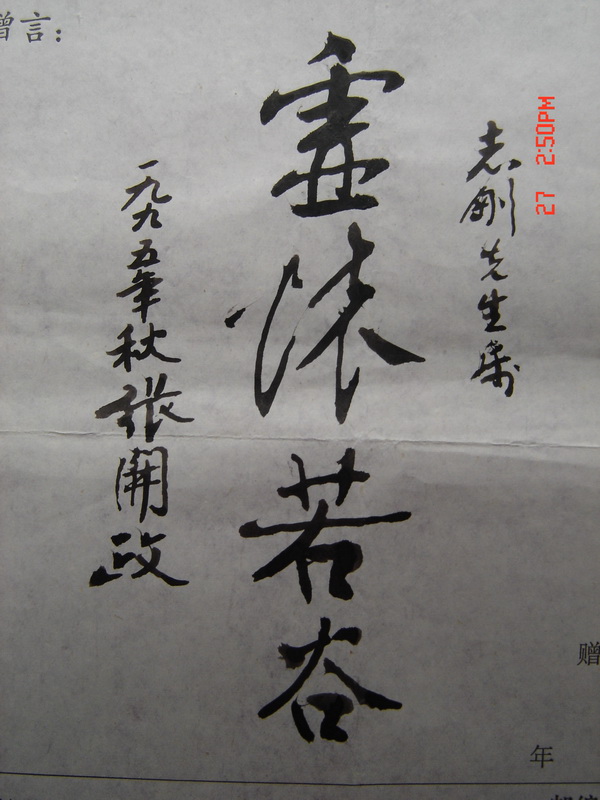 赠言：
志刚先生属
虚怀若谷
一九九五年秋张開政
27 2:50PM
赠
年